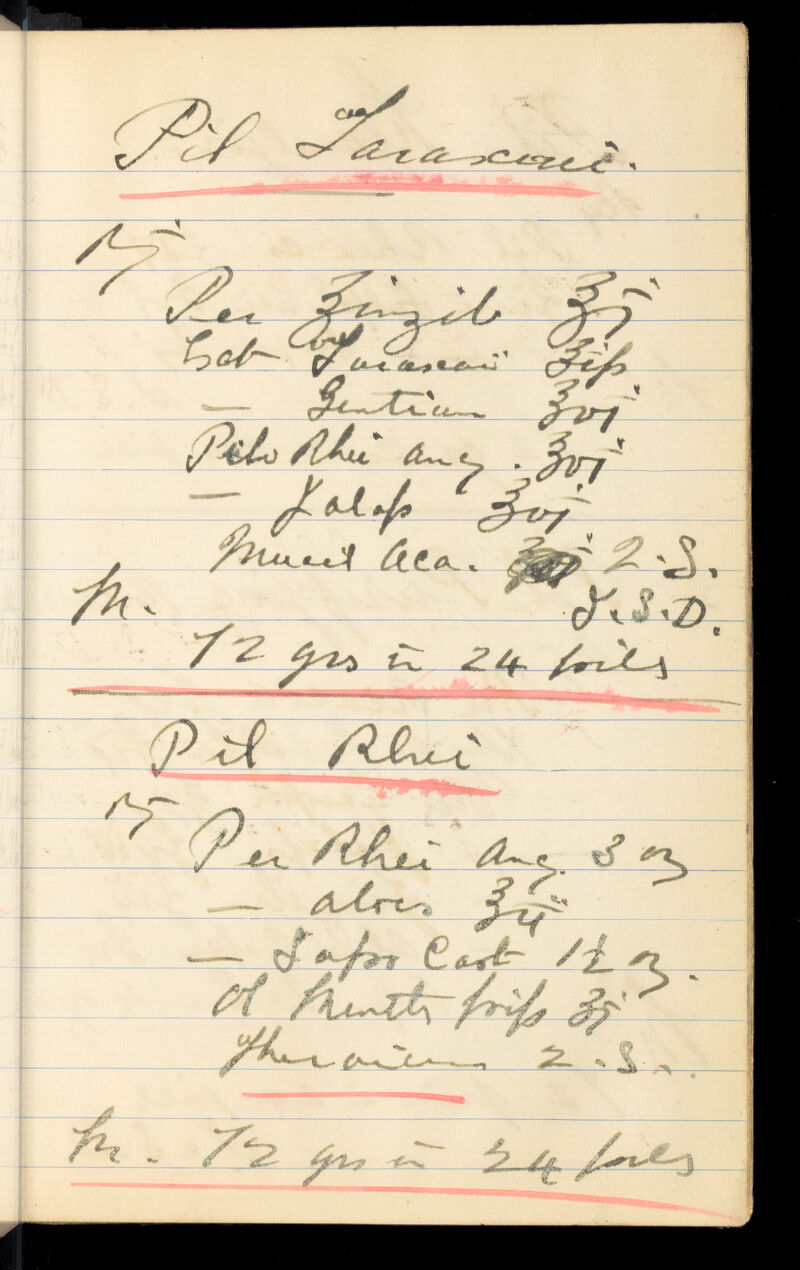 Pil Taraxaci.
℞
Per Zinzib ʒj
Ext Taraxaci ʒiß
— Gentian ʒvj
Pilv Rhei Ang. ʒvj
— Jalap ʒvj
Mucil Aca. Q.S.
M. F.S.D.
72 grs in 24 pills
Pil Rhei
℞
Per Rhei Ang. 3 oz
— Aloes ʒij
— Sapo Cast 1½ oz.
Ol Menth pip ʒj
Theriacum Q.S.
M. 72 grs in 24 pills